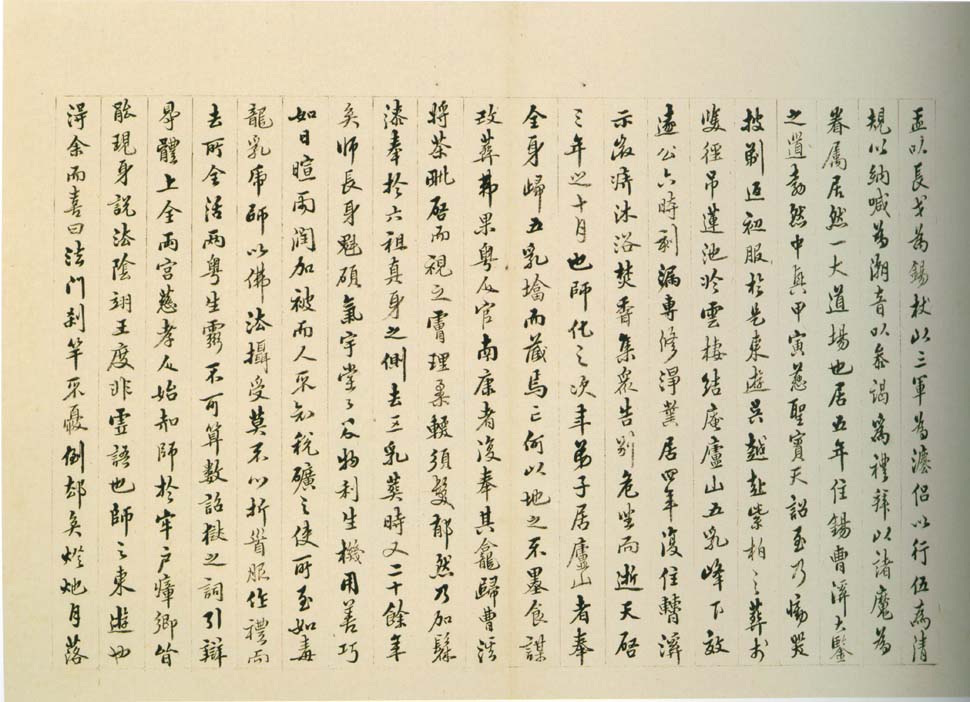 盂以長戈為錫杖以三軍為灋侶以行伍為清
規以納喊為潮音以參謁為禮拜以諸魔為
眷屬居然一大道場也居五年住錫曹溪大鑒
之道勃然中興甲寅慈聖賓天詔至乃慟哭
披剃返初服於是東遊吳越赴紫柏之葬於
雙徑吊蓮池於雲棲結庵廬山五乳峰下效
遠公六時刻漏專修淨業居四年復住曹溪
示微疾沐浴焚香集眾告別危坐而逝天啟
三年之十月也師化之次年弟子居廬山者奉
全身歸五乳塔而藏焉亡何以地之不墨食謀
改葬弗果粵人官南康者復奉其龕歸曹溪
將茶毗啟而視之膚理柔輭須髮郁然乃加髹
漆奉於六祖真身之側去五乳葬時又二十餘年
矣師長身魁碩氣宇堂堂及物利生機用善巧
如日暄雨潤加被而人不知稅礦之使所至如毒
龍乳虎師以佛法攝受莫不心折首服作禮而
去所全活兩粵生靈不可算數詔獄之詞引辯
得體上全兩宮慈孝人始知師於牢戶瘴鄉皆
能現身說法陰翊王度非虛語也師之東遊也
得余而喜曰法門刹竿不憂倒却矣燈灺月落